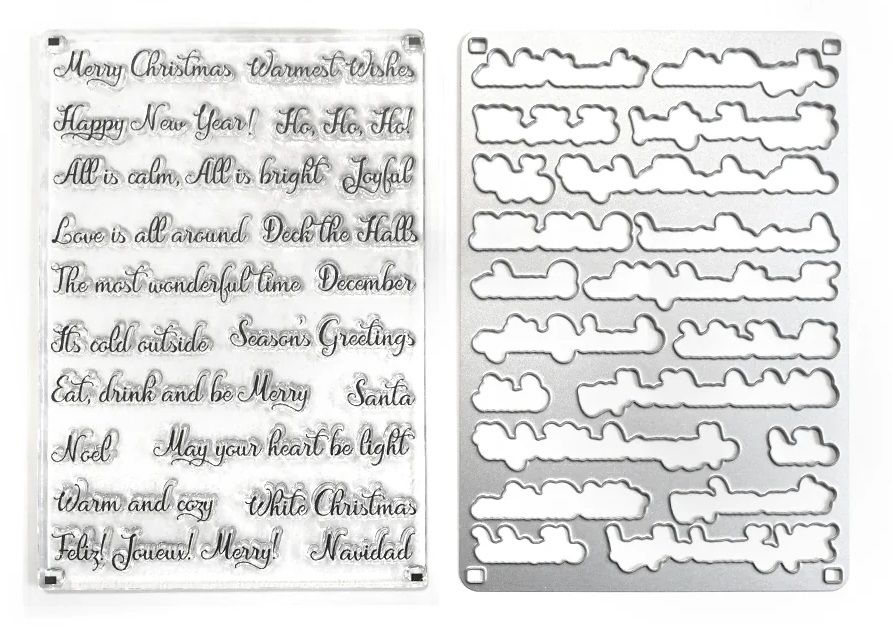 Merry Christmas Warmest Wishes
Happy New Year! Ho, Ho, Ho!
All is calm, All is bright Joyful
Love is all around Deck the Halls
The most wonderful time December
It's cold outside Season's Greetings
Eat, drink and be Merry Santa
Noel May your heart be light
Warm and cozy White Christmas
Feliz! Joyeux! Merry! Navidad